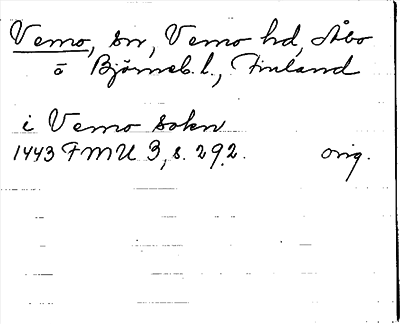 Vemo, sn, Vemo hd, Åbo
o Björneb. l., Finland
i Vemo sokn
1443 FMU 3, s. 292. orig.